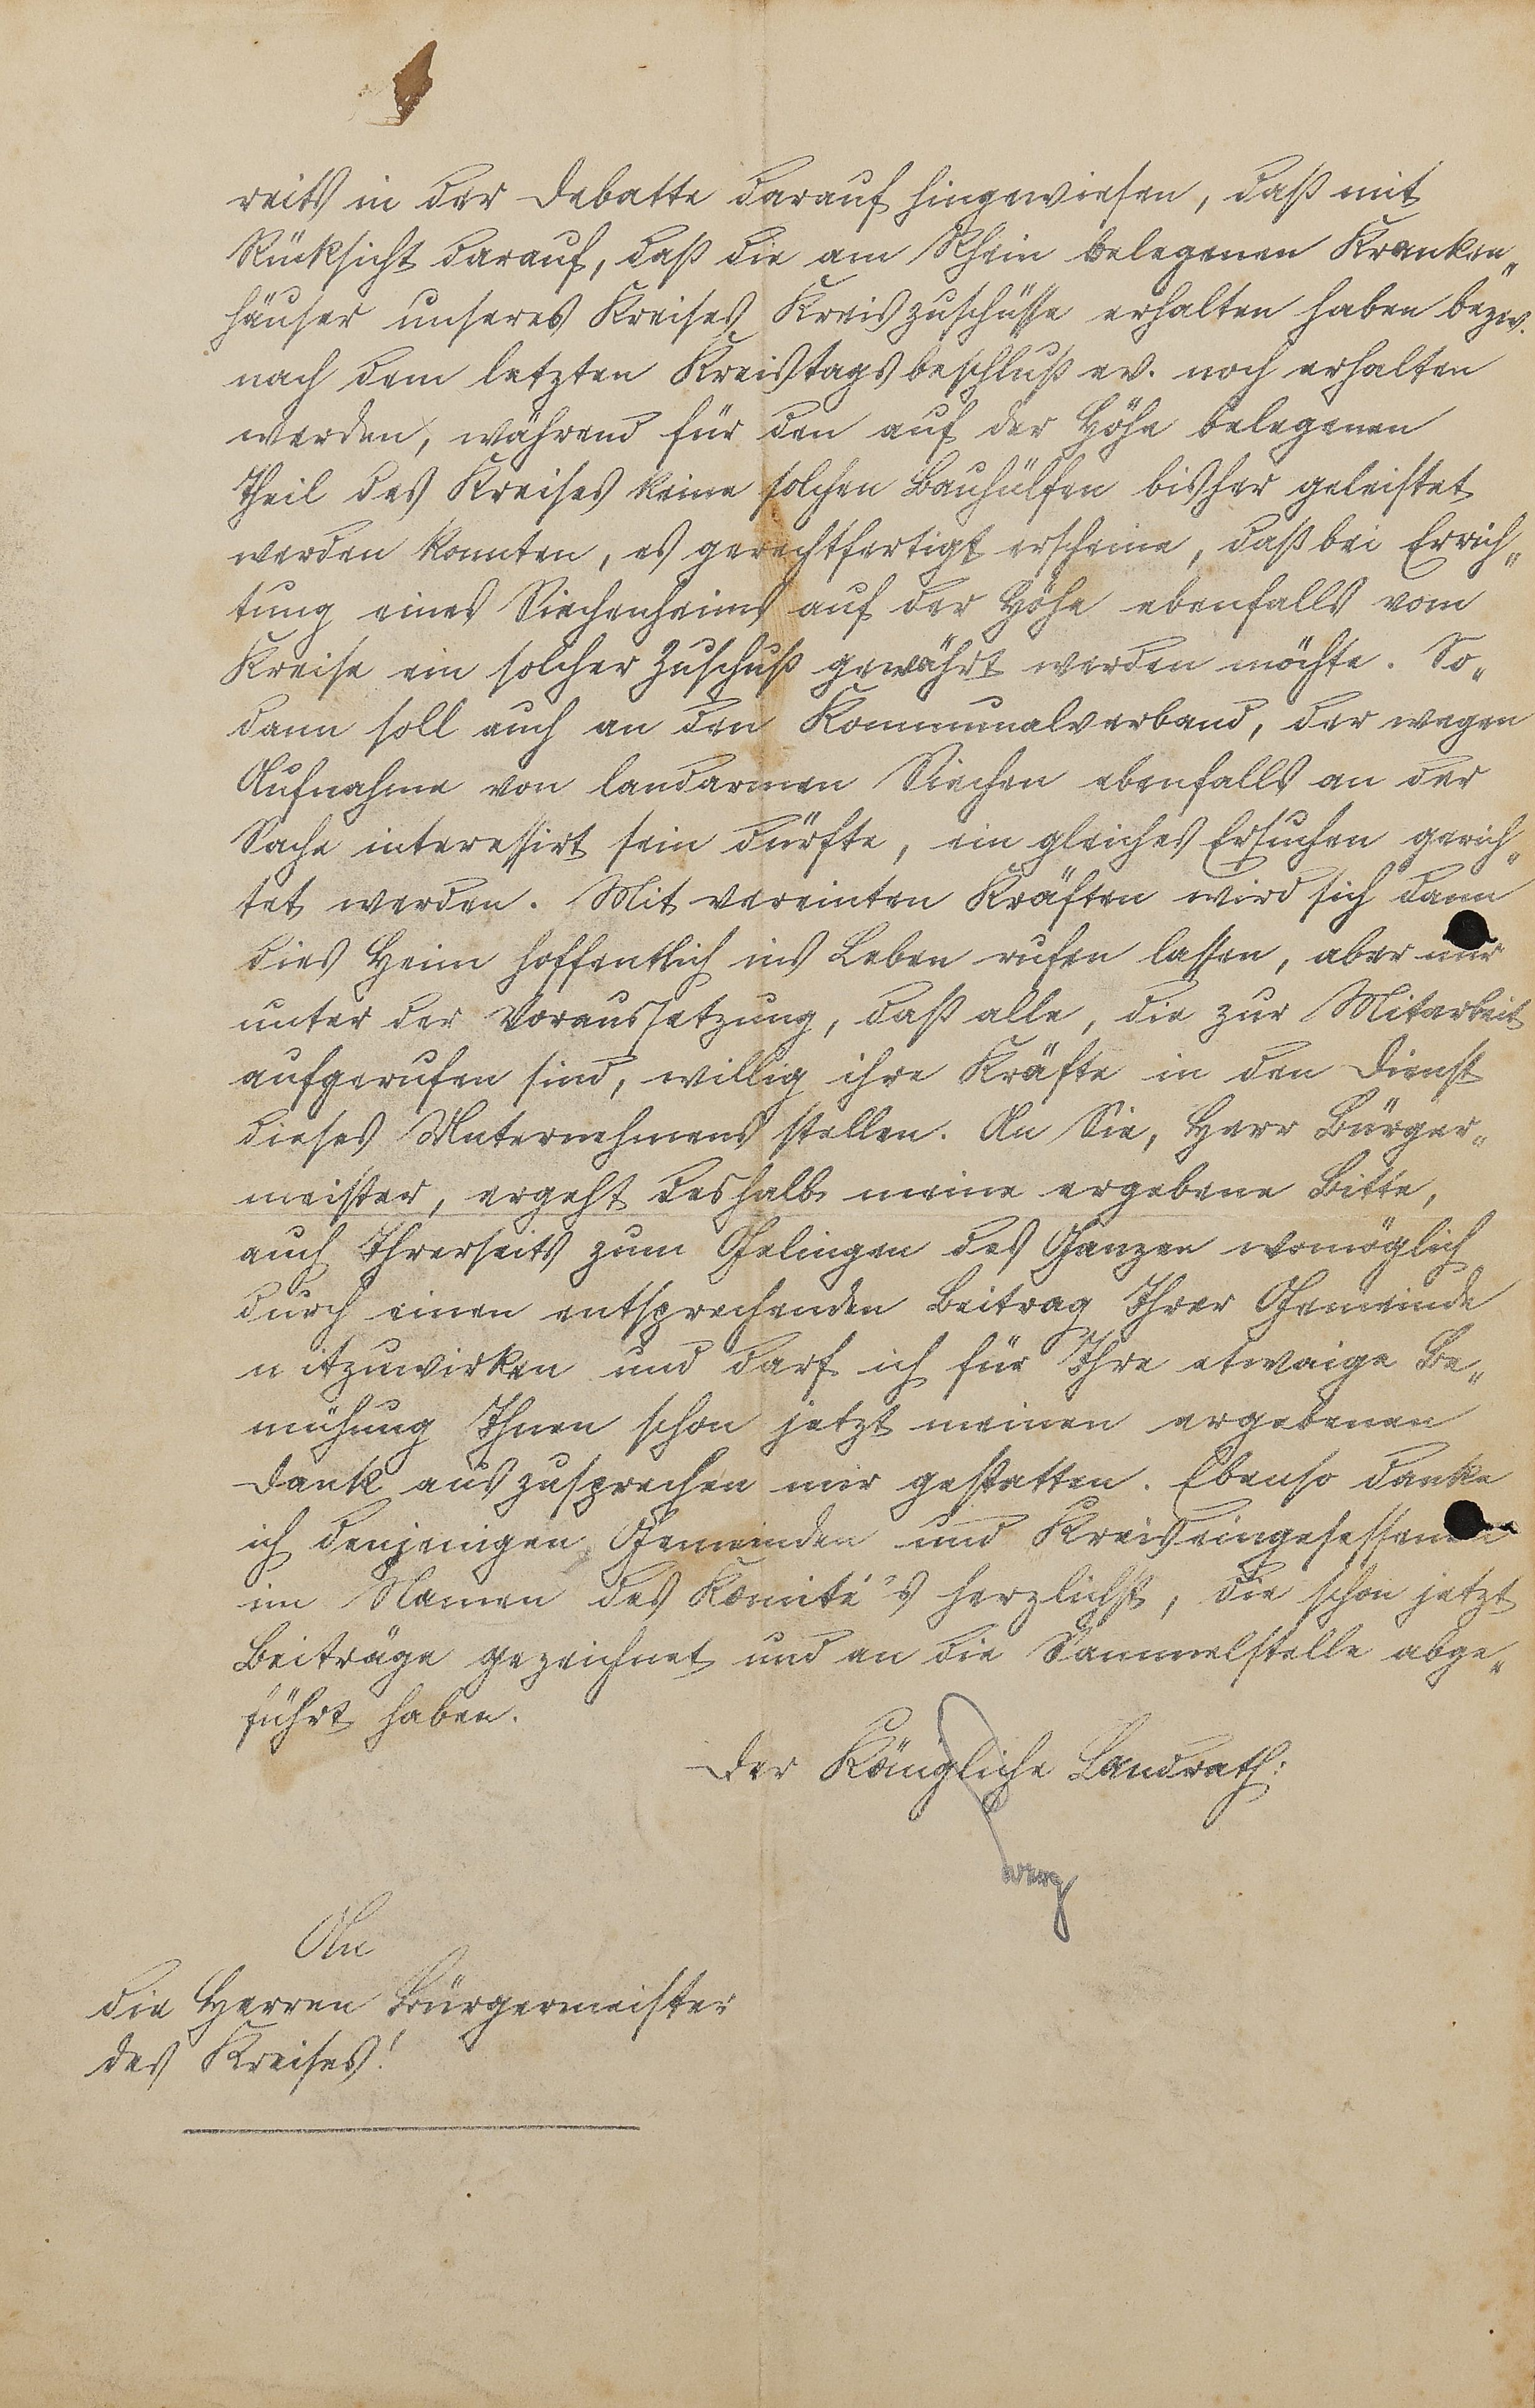 reits in der Debatte darauf hingewiesen, daß mit
Rücksicht darauf, daß die am Rhein belegenen Kranken„
häuser unseres Kreises Kreiszuschüsse erhalten haben bezw.
nach dem letzten Kreistagsbeschluß ev. noch erhalten
werden, während für den auf der Höhe belegenen
Theil des Kreises keine solchen Bauhülfen bisher geleistet
werden konnten, es gerechtfertigt erscheine, daß bei Errich„
tung eines Siechenheims auf der Höhe ebenfalls vom
Kreise ein solcher Zuschuß gewährt werden möchte. So„
dann soll auch an den Kommunalverband, der wegen
Aufnahme von landarmen Siechen ebenfalls an der
Sache interessirt sein dürfte, ein gleiches Ersuchen gerich„
tet werden. Mit vereinten Kräften wird sich dann
dies Heim hoffentlich ins Leben rufen lassen, aber nur
unter der Voraussetzung, daß alle, die zur Mitarbeit
aufgerufen sind, willig ihre Kräfte in den Dienst
dieses Unternehmens stellen. An Sie, Herr Bürger„
meister, ergeht deshalb meine ergebene Bitte,
auch Ihrerseits zum Gelingen des Ganzen womöglich
durch einen entsprechenden Beitrag Ihrer Gemeinde
mitzuwirken und darf ich für Ihre etwaige Be„
mühung Ihnen schon jetzt meinen ergebenen
Dank auszusprechen mir gestatten. Ebenso danke
ich denjenigen Gemeinden und Kreiseingesessenen
im Namen des Komité's herzlichst, die schon jetzt
Beiträge gezeichnet und an die Sammelstelle abge„
führt haben.
Der Königliche Landrath:
An
die Herren Bürgermeister
des Kreises!